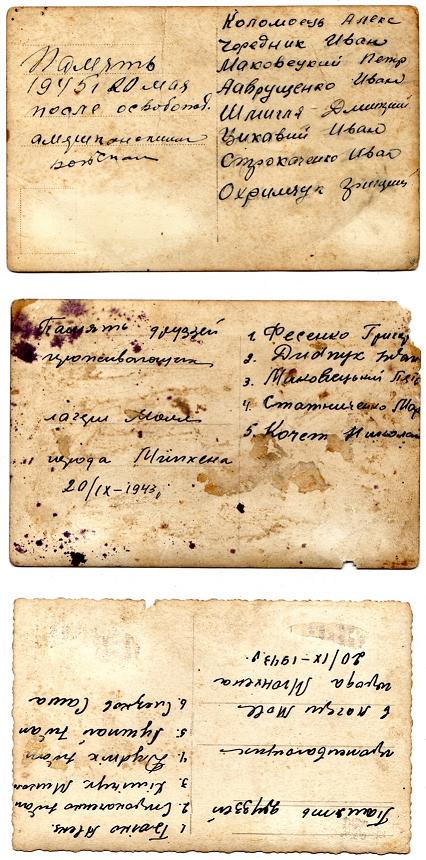 Память
1945 г 20 мая
после освобожд.
американскими
войскам
Коломоець Алекс
Чередник Иван
Маковецкий Петр
Лаврущенко Иван
Шмигля Дмитрий
Цикавий Иван
Строкаченко Иван
Охримчук
Память друзей
проживающих
лагери Молл
города Мюнхена
20/IX-1943г
1. Фесенко Григ
2. Диднук Иван
3. Маковецький
4. Статниченко
5. Кочет Николай
Память друзей
проживающих
в лагери Moll
города Мюнхена
20/IX-1943г.
1. Бойко
2. Строкаченко Иван
3.
4. Дидик Иван
5. Иван
6. Саша